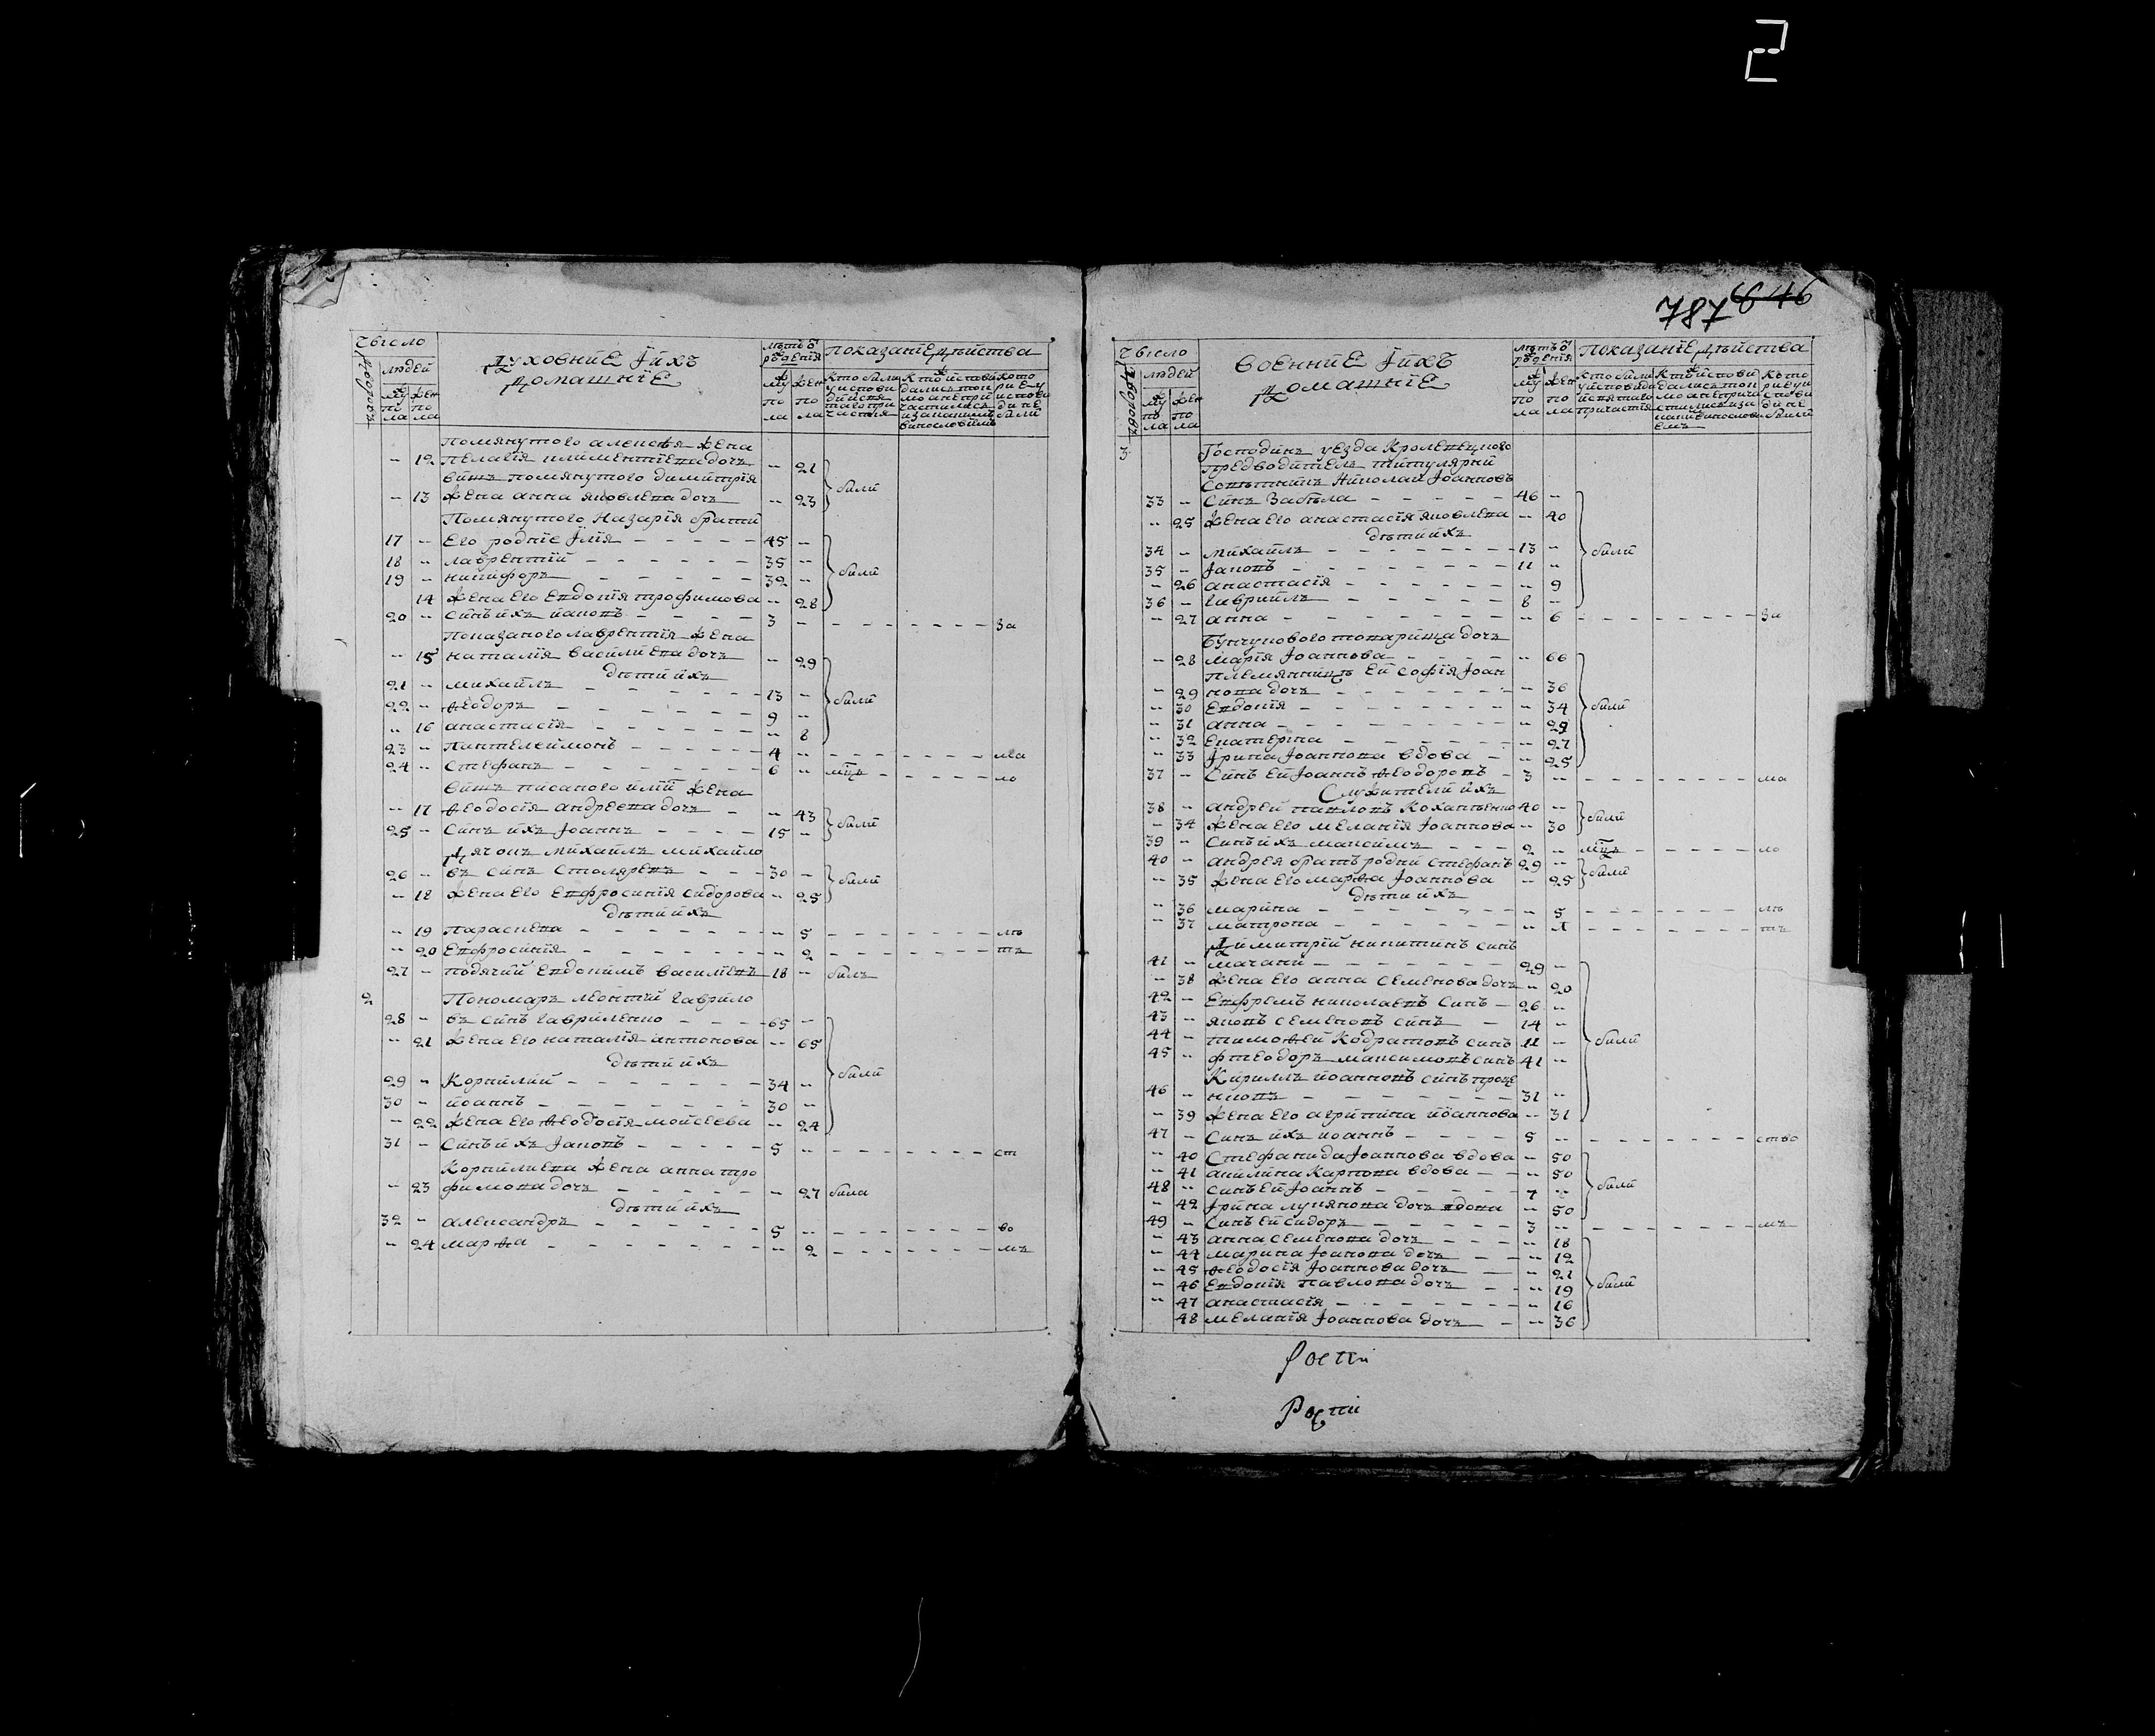 2
787 6646
Число
дворовъ
людей
му по ла
жен по ла
Духовние Ихъ
Домашніе
лѣтъ ѿ рождения
му по ла
жен по ла
Показаніе Дѣйства
помянутого алексѣя жена
- 12 пелагія климентіева дочь - 21
виш помянутого димитрія
- 13 жена анна яковлева дочь - 23 били
Помянутого Назарія брати
17 - Его родніе Илія 45 -
18 - лаврентій 35 -
19 - никифоръ 32 - били
14 жена Его Евдокія трофимова - 28
20 - синъ ихъ иаковъ 3 - за
Показаного лаврентія жена
- 15 наталія василиева дочь - 29
дѣти ихъ
21 - михаилъ 13 -
22 - ѳеодоръ 9 - били
- 16 анастасія - 8
23 - Пантелеймонъ 4 - ма
24 - Стефанъ 6 - мцъ ло
виш писаного илии жена
- 17 ѳеодосія андреева дочь - 43
25 - Синъ ихъ Іоаннъ 15 - били
Дячокъ михаилъ михайло
26 - въ синъ Столяревъ 30 -
- 18 жена Его Евфросинія сидорова - 25 били
дѣти ихъ
- 19 Параскева - 5 лѣ
- 20 Евфросинія - 2 тъ
27 - подячий Евдокимъ василіевъ 18 - билъ
2 Пономаръ леонтий гаврило
28 - въ синъ гавриленко 65 -
- 21 жена Его наталія антонова - 65
дѣти ихъ
29 - Корнилий 34 - били
30 - иоаннъ 30 -
- 22 жена Его ѳеодосія моисеева - 24
31 - Синъ ихъ Іаковъ 5 - ст
Корнилиева жена анна тро
- 23 фимова дочь - 27 била
дѣти ихъ
32 - александръ 5 - во
- 24 марѳа - 2 мъ
Число
дворовъ
людей
му по ла
жен по ла
военние Ихъ
Домашніе
лѣтъ ѿ рождения
му по ла
жен по ла
Показаніе Дѣйства
3 Господинъ уезда Кролевецкого
предводитель титулярній
Совѣтникъ Николай Іоанновъ
33 - Синъ Забѣла 46 -
- 25 жена его анастасія яковлева - 40
дѣти ихъ
34 - михаилъ 13 - били
35 - Іаковъ 11 -
- 26 анастасія - 9
36 - гавриилъ 8 -
- 27 анна - 6 за
Бунчукового товарища дочь
- 28 марія Іоаннова - 66
племянници Ей софія Іоан
- 29 нова дочь - 36
- 30 Евдокія - 34 били
- 31 анна - 29
- 32 Екатерина - 27
- 33 Ірина Іоаннова вдова - 25
37 - Синъ Ей Іоаннъ ѳеодоровъ 3 - ма
Служители ихъ
38 - андрей павловъ Коханъенко 40 -
- 34 жена Его меланія Іоаннова - 30 били
39 - Синъ ихъ максимъ 2 - мцъ ло
40 - андрея братъ родній стефанъ 29 -
- 35 жена Его марѳа Іоаннова - 25 били
дѣти ихъ
- 36 марина - 5 лѣ
- 37 матрона - тъ
Димитрій никитинъ синъ
41 - 29 -
- 38 жена Его анна семенова дочь - 20
42 - Ефремъ николаевъ синъ 26 -
43 - яковъ семеновъ синъ 14 -
44 - тимоѳей Кодратовъ синъ 11 - били
45 - ѳеодоръ максимовъ синъ 41 -
Кириллъ иоанновъ синъ проце
46 - нковъ 31 -
- 39 жена Его агрипина иоаннова - 31
47 - Синъ ихъ иоаннъ 5 - ство
- 40 Стефанида Іоаннова вдова - 50
- 41 акилина Карпова вдова - 50
48 - синъ Ей Іоаннъ 7 - били
- 42 Ірина лукянова дочь вдова - 50
49 - Синъ Ей сидоръ 3 - мъ
- 43 анна семенова дочь - 18
- 44 марина Іоанова дочь - 12
- 45 ѳеодосія Іоаннова дочь - 21
- 46 Евдокія павлова дочь - 19 били
- 47 анастасія - 16
48 меланія Іоаннова дочь - 36